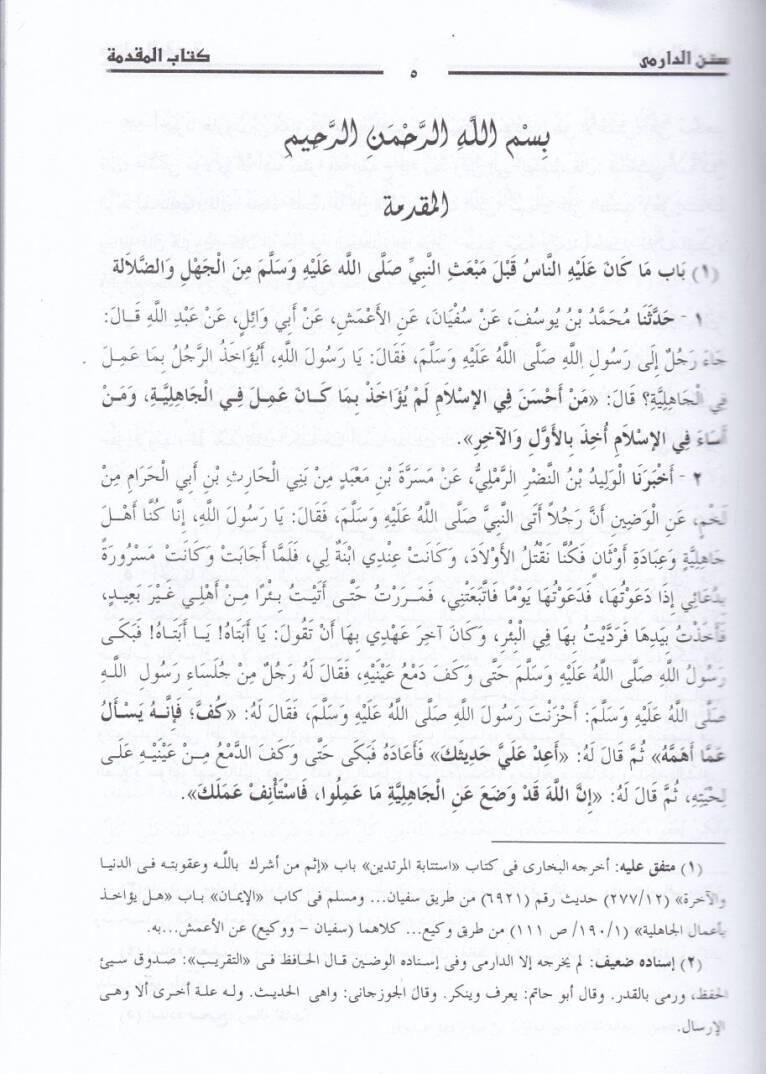 سنن الدارمى
كتاب المقدمة
٥
بِسْمِ اللَّهِ الرَّحْمَنِ الرَّحِيمِ
المقدمة
(١) بَاب مَا كَانَ عَلَيْهِ النَّاسُ قَبْلَ مَبْعَثِ النَّبِيِّ صَلَّى الله عَلَيْهِ وَسَلَّمَ مِنَ الْجَهْلِ وَالضَّلاَلة
١ - حَدَّثَنَا مُحَمَّدُ بْنُ يُوسُفَ، عَنْ سُفْيَانَ، عَنِ الأَعْمَشِ، عَنْ أَبِي وَائِلٍ، عَنْ عَبْدِ اللَّهِ قَالَ:
جَاءَ رَجُلٌ إِلَى رَسُولِ اللَّهِ صَلَّى اللَّهُ عَلَيْهِ وَسَلَّمَ، فَقَالَ: يَا رَسُولَ اللَّهِ، أَيُؤَاخَذُ الرَّجُلُ بِمَا عَمِلَ
فِي الْجَاهِلِيَّةِ؟ قَالَ: «مَنْ أَحْسَنَ فِي الإِسْلاَمِ لَمْ يُؤَاخَذْ بِمَا كَانَ عَمِلَ فِي الْجَاهِلِيَّةِ، وَمَنْ
أَسَاءَ فِي الإِسْلاَمِ أُخِذَ بِالأَوَّلِ وَالآخِرِ».
٢ - أَخْبَرَنَا الْوَلِيدُ بْنُ النَّضْرِ الرَّمْلِيُّ، عَنْ مَسَرَّةَ بْنِ مَعْبَدٍ مِنْ بَنِي الْحَارِثِ بْنِ أَبِي الْحَرَامِ مِنْ
لَخْمٍ، عَنِ الْوَضِينِ أَنَّ رَجُلاً أَتَى النَّبِيَّ صَلَّى اللَّهُ عَلَيْهِ وَسَلَّمَ، فَقَالَ: يَا رَسُولَ اللَّهِ، إِنَّا كُنَّا أَهْلَ
جَاهِلِيَّةٍ وَعِبَادَةِ أَوْثَانٍ فَكُنَّا نَقْتُلُ الأَوْلاَدَ، وَكَانَتْ عِنْدِي ابْنَةٌ لِي، فَلَمَّا أَجَابَتْ وَكَانَتْ مَسْرُورَةً
بِدُعَائِي إِذَا دَعَوْتُهَا، فَدَعَوْتُهَا يَوْمًا فَاتَّبَعَتْنِي، فَمَرَرْتُ حَتَّى أَتَيْتُ بِئْرًا مِنْ أَهْلِي غَيْرَ بَعِيدٍ،
فَأَخَذْتُ بِيَدِهَا فَرَدَّيْتُ بِهَا فِي الْبِئْرِ، وَكَانَ آخِرَ عَهْدِي بِهَا أَنْ تَقُولَ: يَا أَبَتَاهُ! يَا أَبَتَاهُ! فَبَكَى
رَسُولُ اللَّهِ صَلَّى اللَّهُ عَلَيْهِ وَسَلَّمَ حَتَّى وَكَفَ دَمْعُ عَيْنَيْهِ، فَقَالَ لَهُ رَجُلٌ مِنْ جُلَسَاءِ رَسُولِ اللَّهِ
صَلَّى اللَّهُ عَلَيْهِ وَسَلَّمَ: أَحْزَنْتَ رَسُولَ اللَّهِ صَلَّى اللَّهُ عَلَيْهِ وَسَلَّمَ، فَقَالَ لَهُ: «كُفَّ؛ فَإِنَّهُ يَسْأَلُ
عَمَّا أَهَمَّهُ» ثُمَّ قَالَ لَهُ: «أَعِدْ عَلَيَّ حَدِيثَكَ» فَأَعَادَهُ فَبَكَى حَتَّى وَكَفَ الدَّمْعُ مِنْ عَيْنَيْهِ عَلَى
لِحْيَتِهِ، ثُمَّ قَالَ لَهُ: «إِنَّ اللَّهَ قَدْ وَضَعَ عَنِ الْجَاهِلِيَّةِ مَا عَمِلُوا، فَاسْتَأْنِفْ عَمَلَكَ».
(١) متفق عليه: أخرجه البخارى فى كتاب «استتابة المرتدين» باب «إثم من أشرك باللَّه وعقوبته فى الدنيا
والآخرة» (٢٧٧/١٢) حديث رقم (٦٩٢١) من طريق سفيان... ومسلم فى كتاب «الإيمان» باب «هل يؤاخذ
بأعمال الجاهلية» (١٩٠/١/ ص ١١١) من طرق وكيع... كلاهما (سفيان - ووكيع) عن الأعمش...به.
(٢) إسناده ضعيف: لم يخرجه إلا الدارمى وفى إسناده الوضين قال الحافظ فى «التقريب»: صدوق سيئ
الحفظ، ورمى بالقدر. وقال أبو حاتم: يعرف وينكر. وقال الجوزجانى: واهى الحديث. وله علة أخرى ألا وهى
الإرسال.